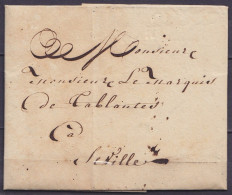 Monsieur
Monsieur Le Marquis
de Tablantes
à
Seville